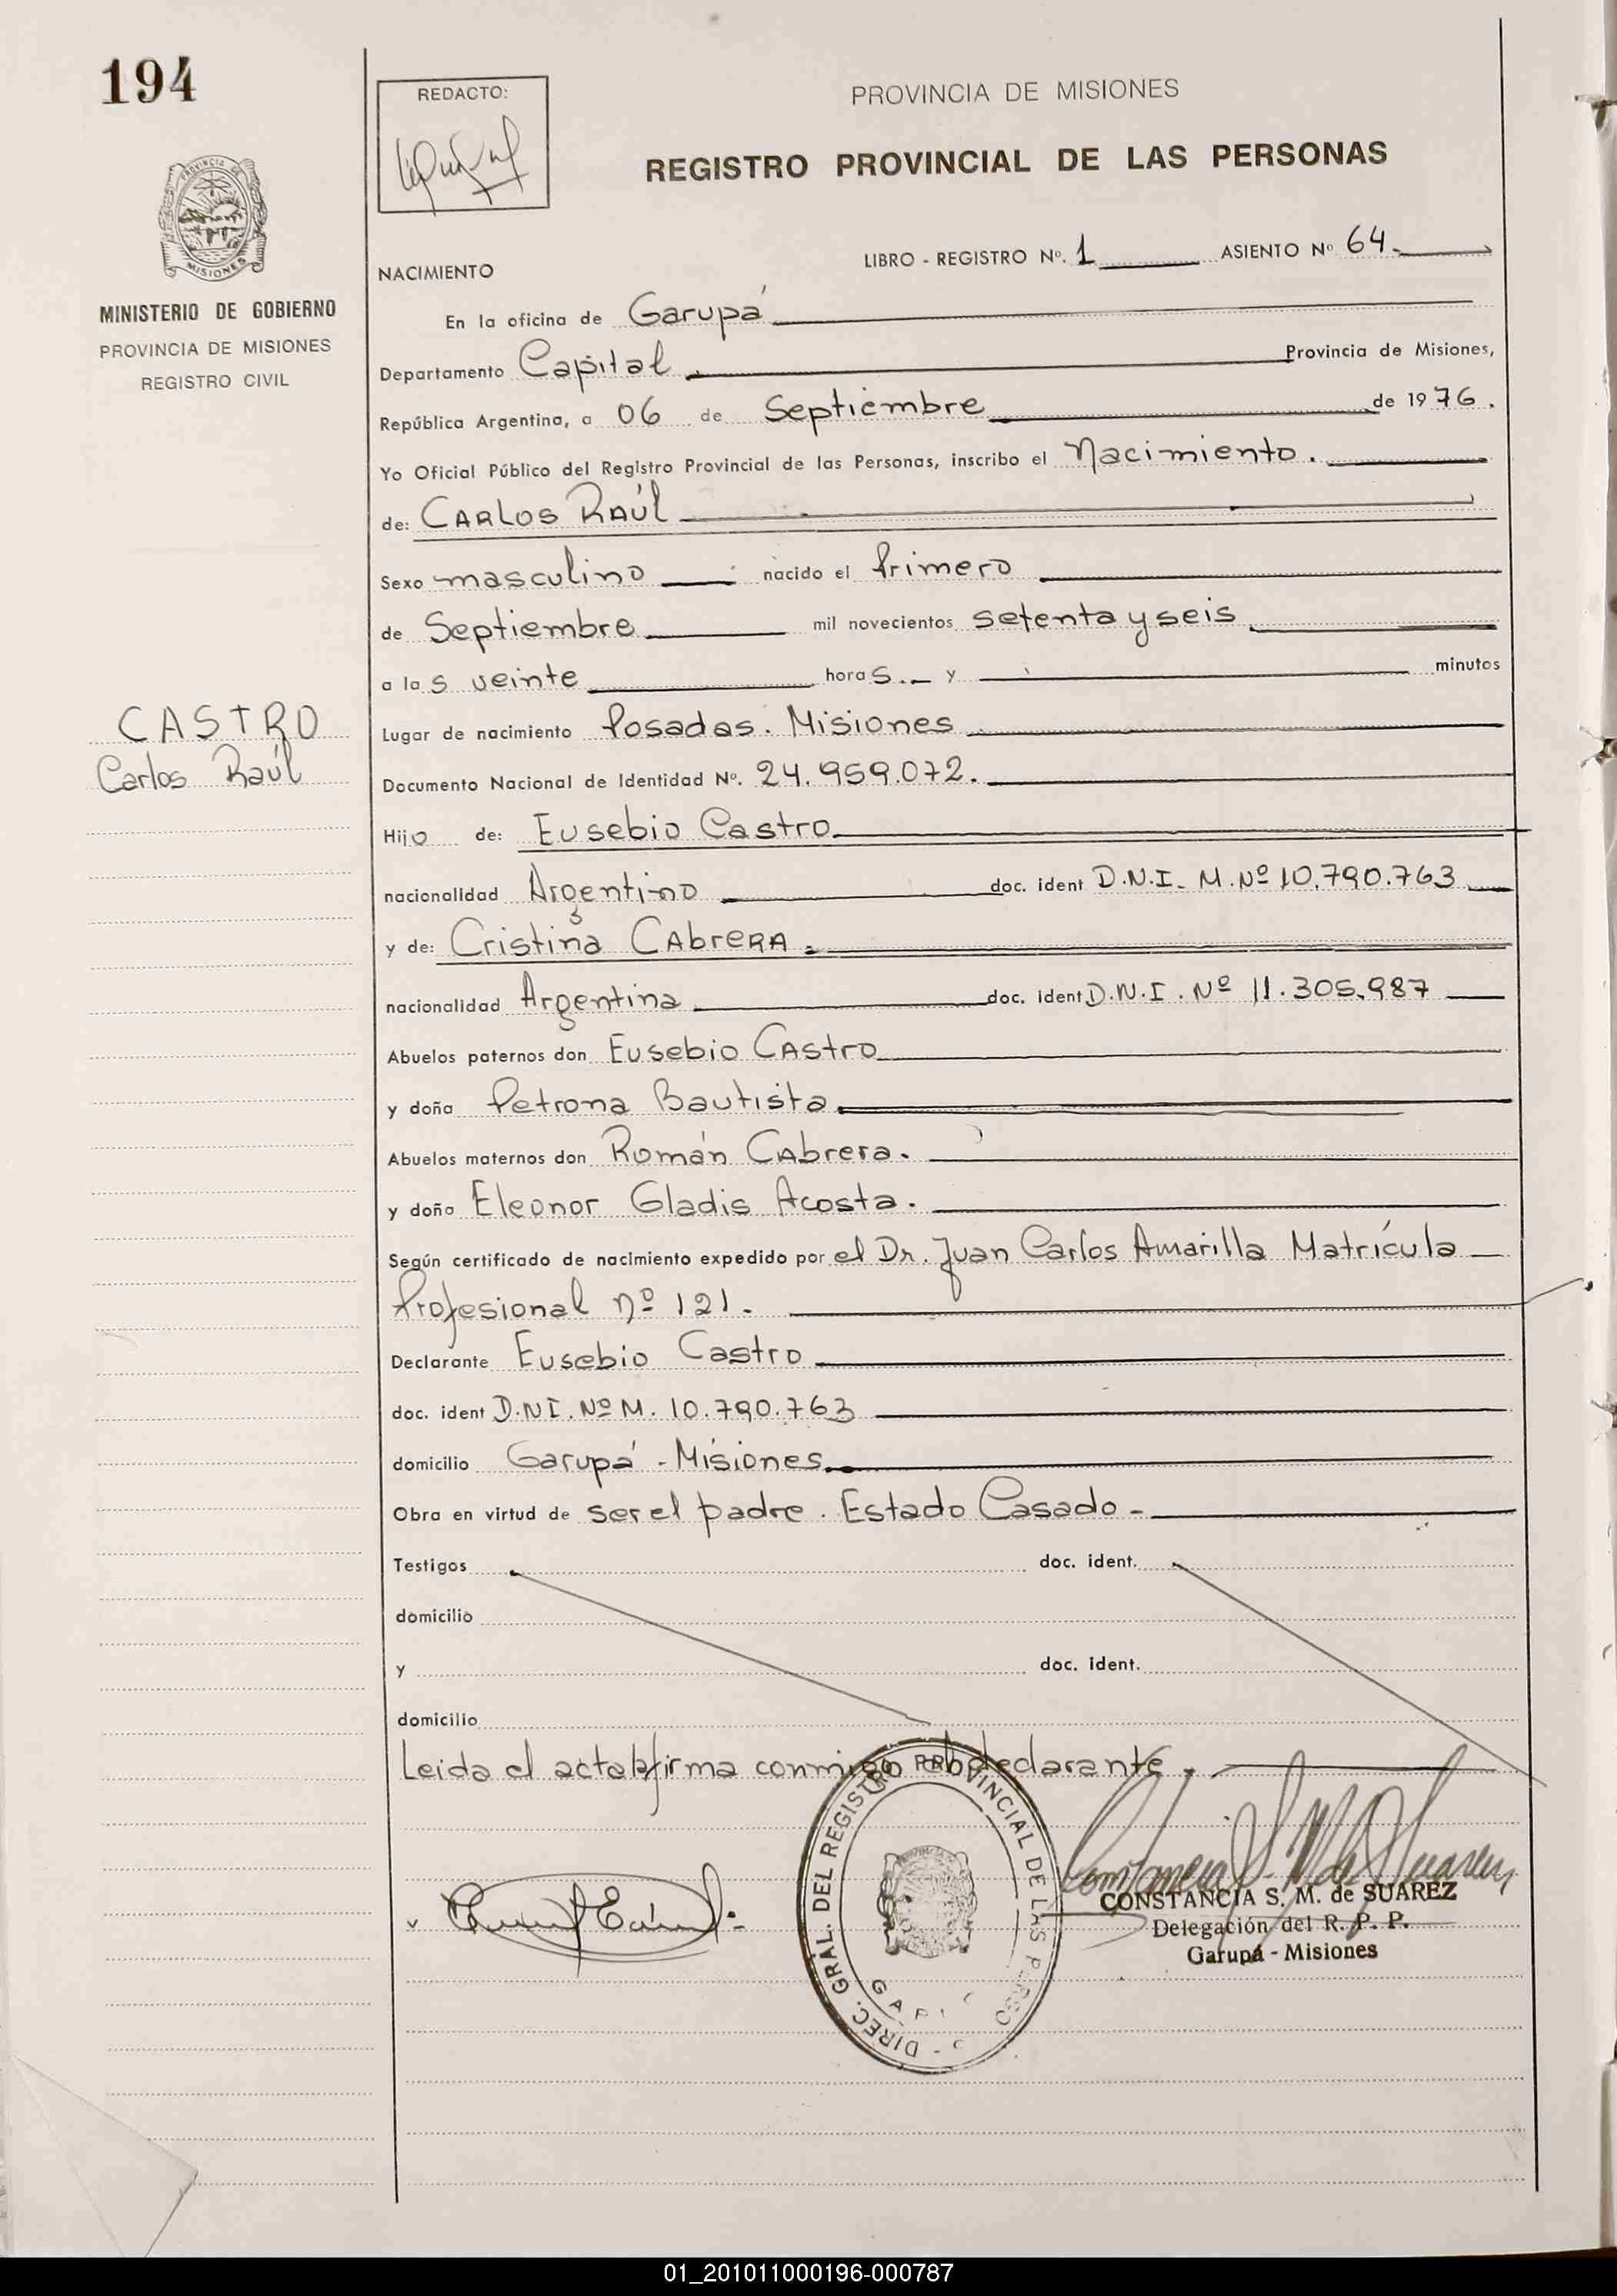 194
REDACTO:
PROVINCIA DE MISIONES
REGISTRO PROVINCIAL DE LAS PERSONAS
PROVINCIA DE
MISIONES
MINISTERIO DE GOBIERNO
PROVINCIA DE MISIONES
REGISTRO CIVIL
LIBRO - REGISTRO Nº. 1 ASIENTO Nº 64.
NACIMIENTO
En la oficina de Garupá
Departamento Capital. Provincia de Misiones,
República Argentina, a 06 de Septiembre de 1976.
Yo Oficial Público del Registro Provincial de las Personas, inscribo el Nacimiento.
de: CARLOS RAÚL
Sexo masculino nacido el Primero
de Septiembre mil novecientos setenta y seis
a las veinte horas.- y minutos
CASTRO
Carlos Raúl
Lugar de nacimiento Posadas. Misiones
Documento Nacional de Identidad Nº. 24.959.072.
Hijo de: Eusebio Castro
nacionalidad Argentino doc. ident D.N.I. M.Nº 10.790.763
y de: Cristina CAbreRA.
nacionalidad Argentina doc. ident D.N.I. Nº 11.305.987
Abuelos paternos don Eusebio CAstro
y doña Petrona Bautista
Abuelos maternos don Román CAbrera.
y doña Eleonor Gladis Acosta.
Según certificado de nacimiento expedido por el Dr. Juan Carlos Amarilla Matrícula
Profesional nº 121.
Declarante Eusebio Castro
doc. ident D.NI. Nº M. 10.790.763
domicilio Garupá - Misiones.
Obra en virtud de ser el padre. Estado Casado -
Testigos doc. ident.
domicilio
y doc. ident.
domicilio
Leida el acta firma conmigo el declarante.
DIREC. GRAL. DEL REGISTRO PROVINCIAL DE LAS PERSO
CONSTANCIA S. M. de SUAREZ
Delegación del R. P. P.
Garupá - Misiones
01_201011000196-000787